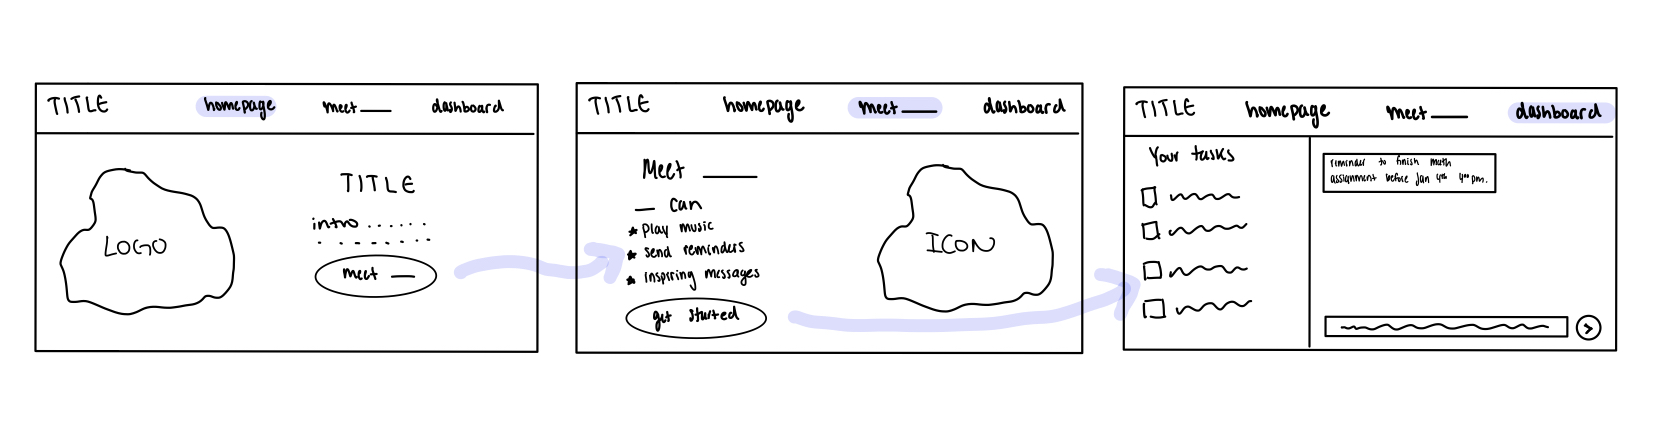 TITLE homepage meet ___ dashboard
LOGO
TITLE
intro ......
. . . . . . .
meet ___
TITLE homepage meet ___ dashboard
Meet ___
__ can
★ Play music
★ Send reminders
★ inspiring messages
get started
ICON
TITLE homepage meet ___ dashboard
Your tasks
reminder to finish math
assignment before Jan 4th 4:00 pm.